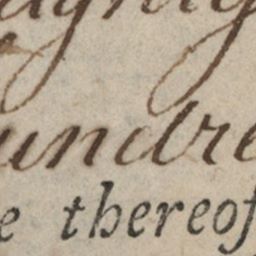 undre
e thereof